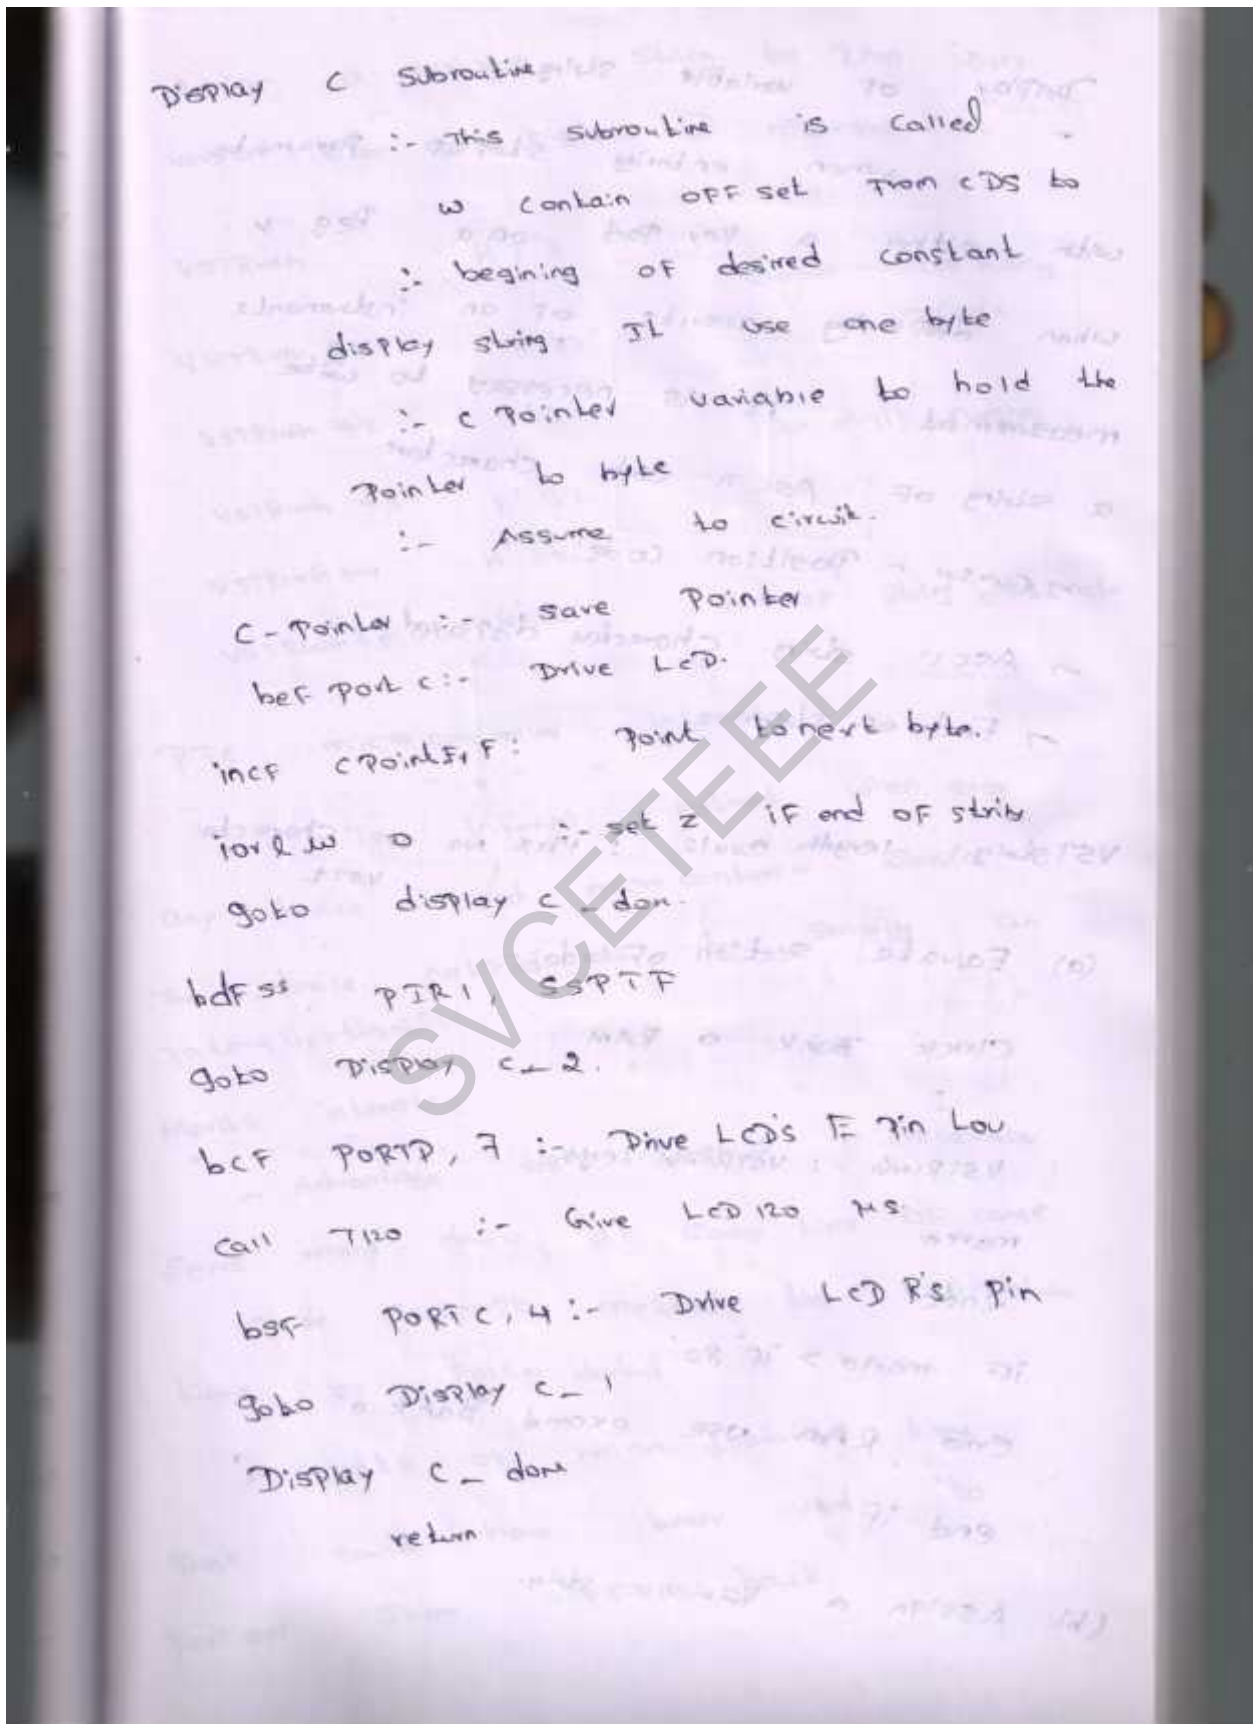 Display C Subroutine
:- This subroutine is called
w contain OFF set From CDS to
:- begining of desired constant
display string It use one byte
:- C Pointer variable to hold the
Pointer to byte
:- Assume to circuit.
C-Pointer :- save Pointer
bcf Port c :- Drive LCD.
incf CPOINTF, F : Point to next byte.
iorlw 0 :- set z if end of string
goto display c_don.
bdfss PIR1, SSPIF
goto Display c_2.
bcf PORTD, 7 :- Drive LCD's E Pin Low
Call T120 :- Give LCD 120 μs
bsf PORTC, 4 :- Drive LCD R's Pin
goto Display c_1
Display c_done
return
SVCETEEE